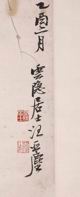 乙酉二月
雲隐居士汪亞塵